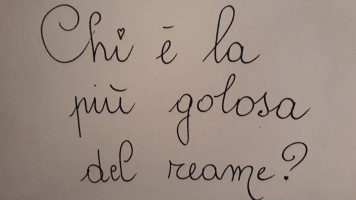 Chi è la
più golosa
del reame?